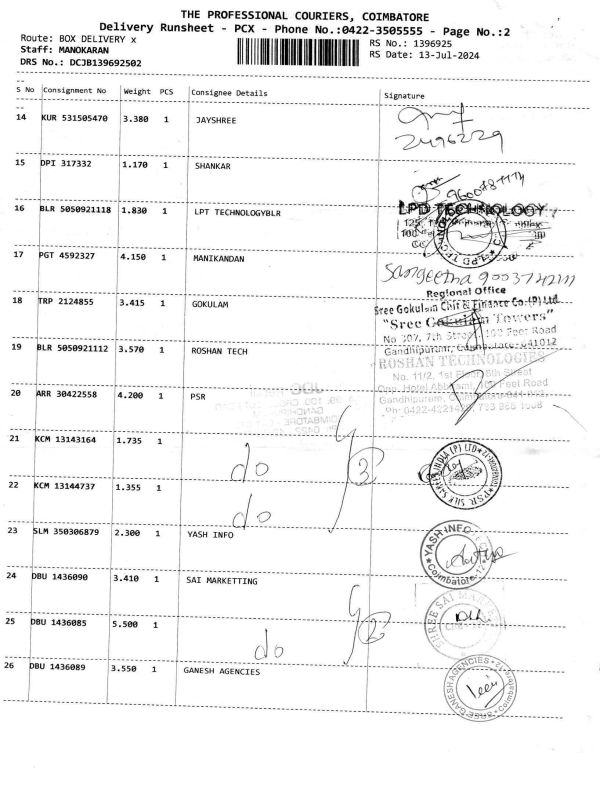 THE PROFESSIONAL COURIERS, COIMBATORE
Delivery Runsheet - PCX - Phone No.:0422-3505555 - Page No.:2
Route: BOX DELIVERY x
Staff: MANOKARAN
DRS No.: DCJB139692502
RS No.: 1396925
RS Date: 13-Jul-2024
S No Consignment No Weight PCS Consignee Details Signature
14 KUR 531505470 3.380 1 JAYSHREE
2496229
15 DPI 317332 1.170 1 SHANKAR
16 BLR 5050921118 1.830 1 LPT TECHNOLOGYBLR
LPD TECHNOLOGY
17 PGT 4592327 4.150 1 MANIKANDAN
Sangeetha
Regional Office
18 TRP 2124855 3.415 1 GOKULAM
Sree Gokulam Chit & Finance Co.(P) Ltd
"Sree Gokulam Towers"
No 307, 7th Street, 100 Feet Road
Gandhipuram, Coimbatore-641012
19 BLR 5050921112 3.570 1 ROSHAN TECH
ROSHAN TECHNOLOGIES
No. 11/2, 1st Floor, 8th Street
Opp. Hotel Abbirami, 100 Feet Road
20 ARR 30422558 4.200 1 PSR
Gandhipuram,
21 KCM 13143164 1.735 1
do
3
22 KCM 13144737 1.355 1
do
23 SLM 350306879 2.300 1 YASH INFO
YASH INFO
Coimbatore-12
24 DBU 1436090 3.410 1 SAI MARKETTING
25 DBU 1436085 5.500 1
do
2
26 DBU 1436089 3.550 1 GANESH AGENCIES
SREE GANESH AGENCIES